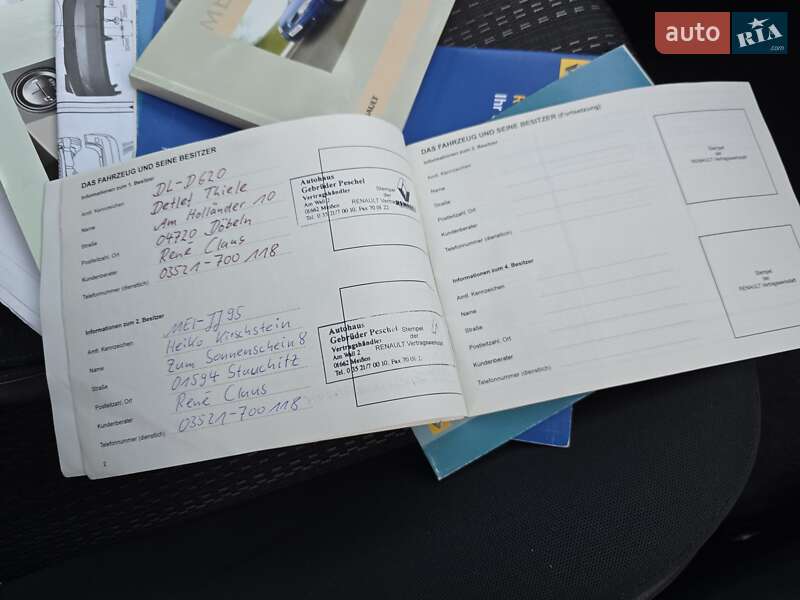 auto RIA .com
ME
RENAULT
Ihr
DAS FAHRZEUG UND SEINE BESITZER
Informationen zum 1. Besitzer
Amtl. Kennzeichen DL-D620
Name Detlef Thiele
Straße Am Holländer 10
Postleitzahl, Ort 04720 Döbeln
Kundenberater René Claus
Telefonnummer (dienstlich) 03521-700 118
Autohaus
Gebrüder Peschel
Vertragshändler
Am Wall 2
01662 Meißen
Tel. 0 35 21/7 00 10, Fax 70 01 22
Stempel
RENAULT
Informationen zum 2. Besitzer
Amtl. Kennzeichen MEI-JJ95
Name Heiko Kirschstein
Straße Zum Sonnenschein 8
Postleitzahl, Ort 01594 Stauchitz
Kundenberater René Claus
Telefonnummer (dienstlich) 03521-700 118
Autohaus
Gebrüder Peschel
Vertragshändler
Am Wall 2
01662 Meißen
Tel. 0 35 21/7 00 10, Fax 70 01 22
Stempel
der
RENAULT Vertragswerkstatt
2
DAS FAHRZEUG UND SEINE BESITZER (Fortsetzung)
Informationen zum 3. Besitzer
Amtl. Kennzeichen
Name
Straße
Postleitzahl, Ort
Kundenberater
Telefonnummer (dienstlich)
Stempel
der
RENAULT Vertragswerkstatt
Informationen zum 4. Besitzer
Amtl. Kennzeichen
Name
Straße
Postleitzahl, Ort
Kundenberater
Telefonnummer (dienstlich)
Stempel
der
RENAULT Vertragswerkstatt